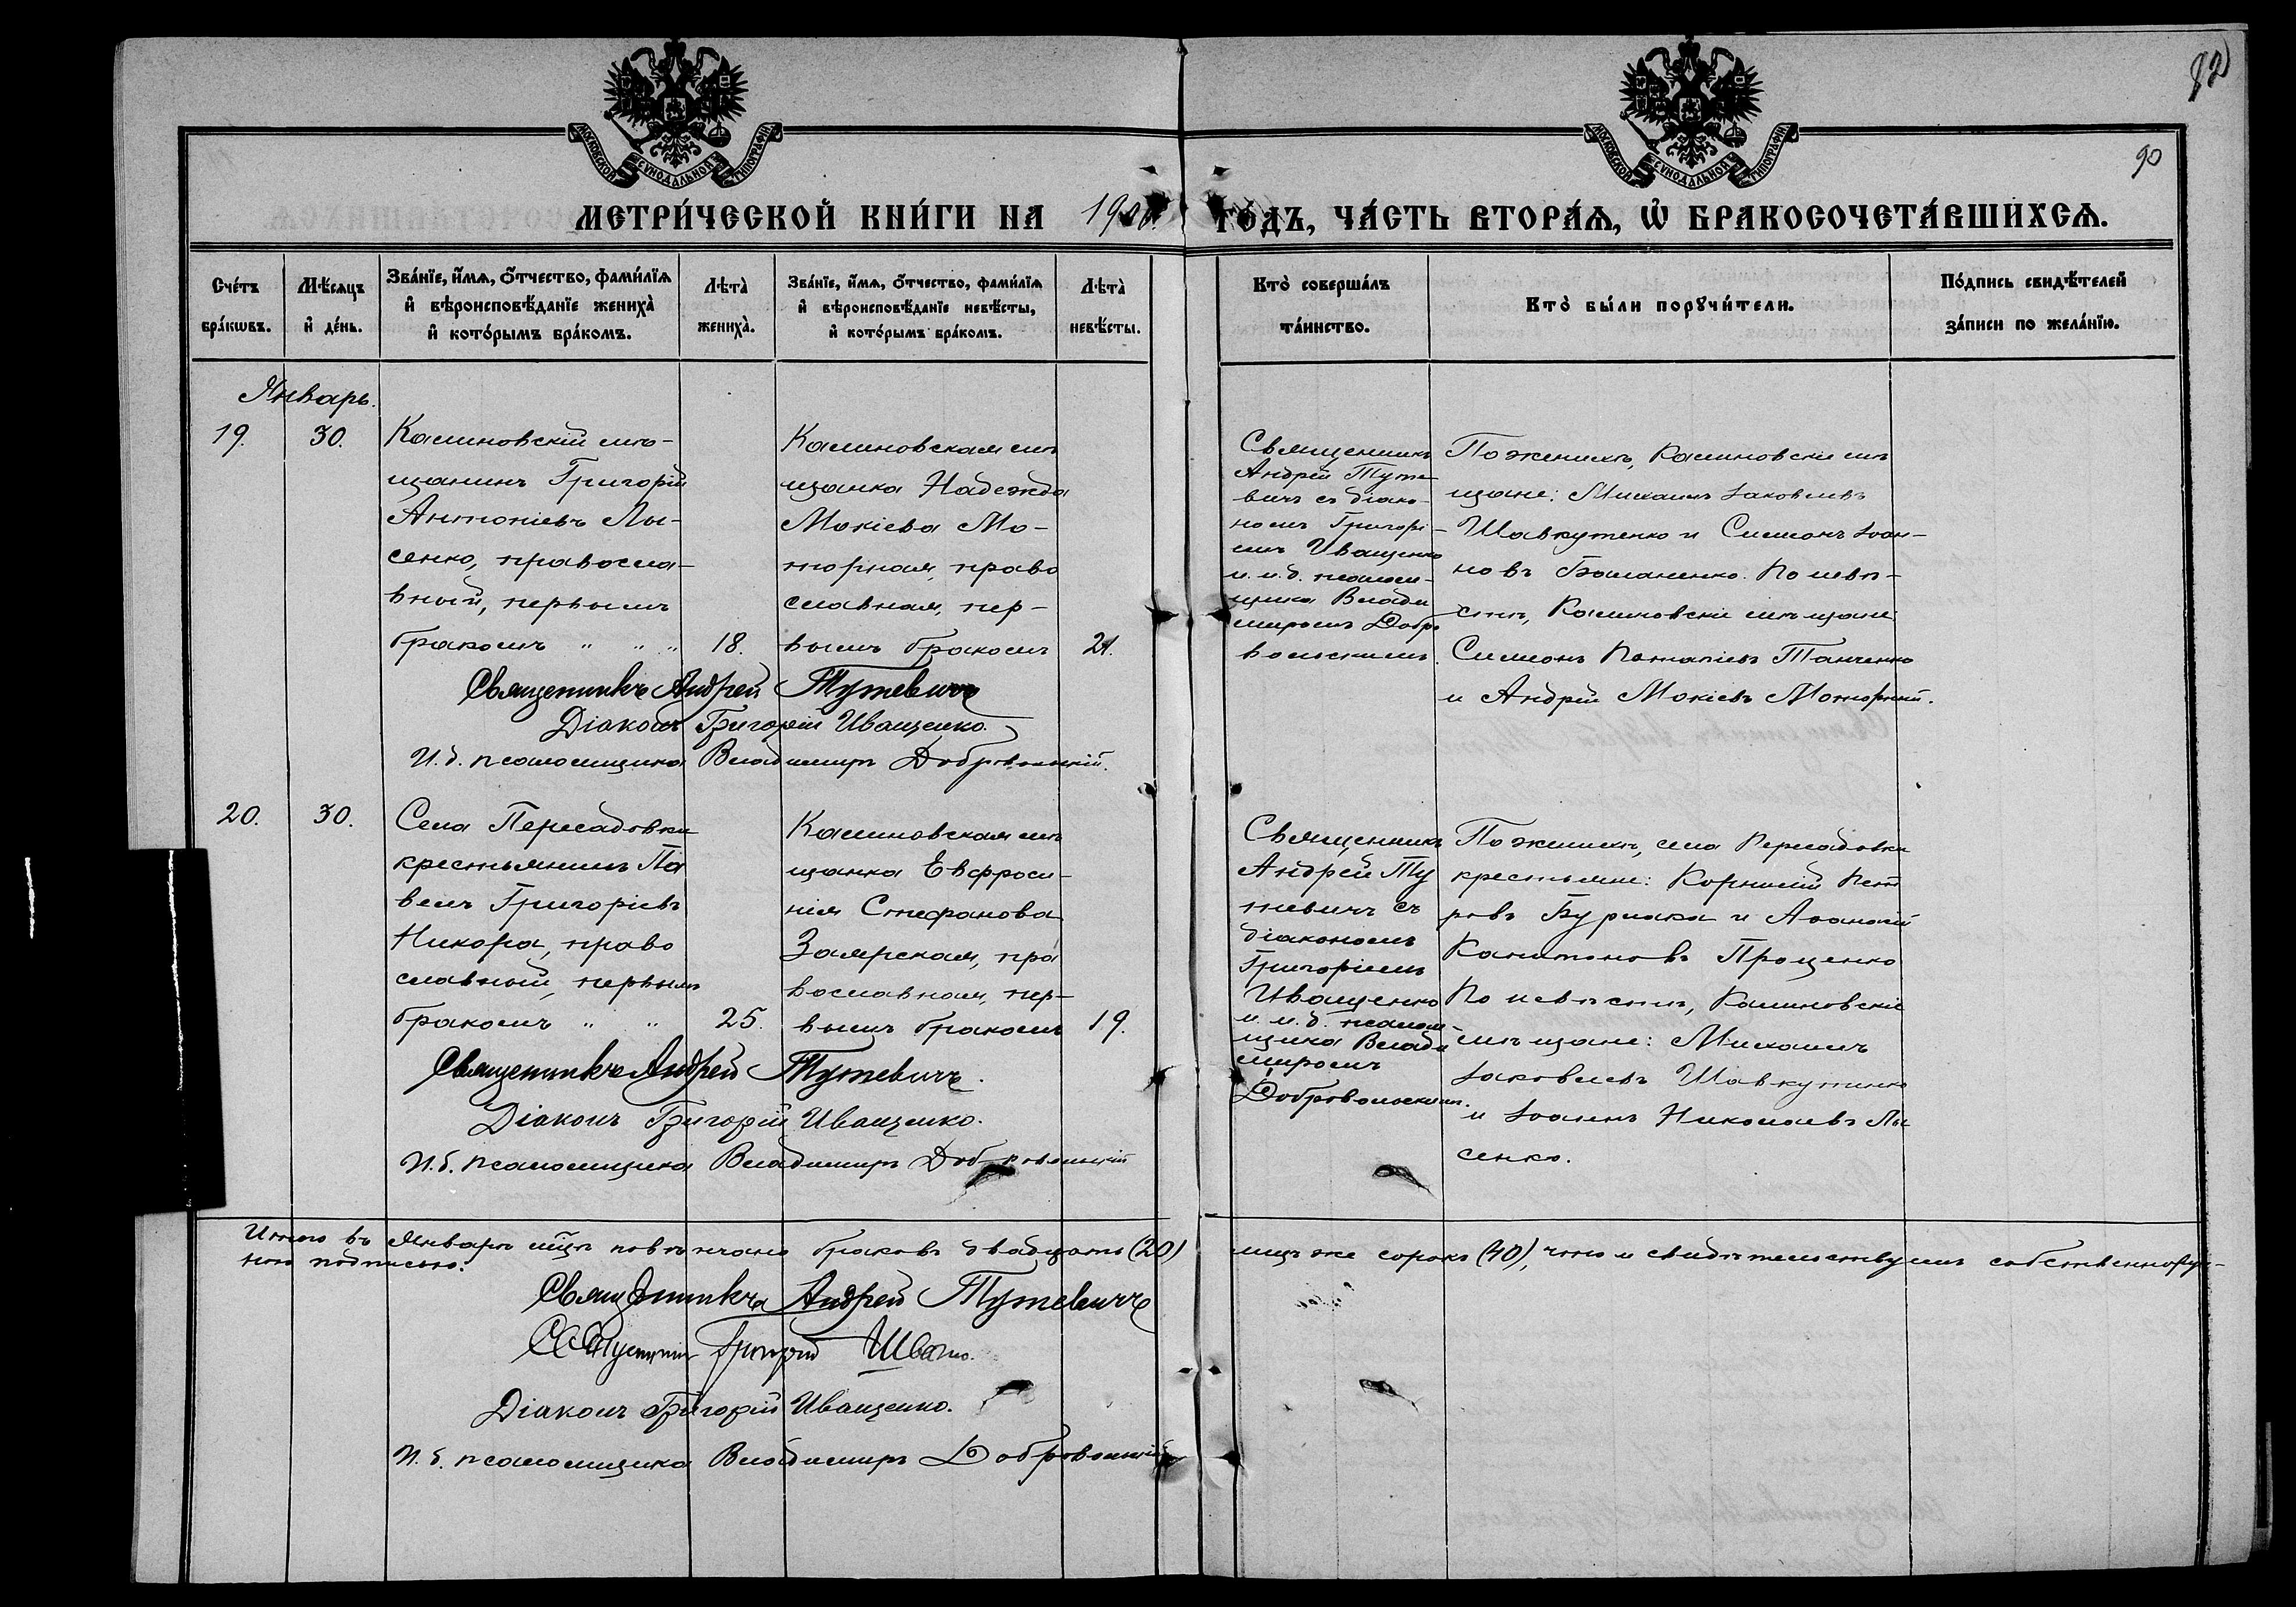 92
90
МОСКОВСКОЙ СѴНОДАЛЬНОЙ ТИПОГРАФІИ
МОСКОВСКОЙ СѴНОДАЛЬНОЙ ТИПОГРАФІИ
МЕТРИ́ЧЕСКОЙ КНИ́ГИ НА
ГО́ДЪ, ЧА́СТЬ ВТОРА́Ѧ, Ѡ҆ БРАКОСОЧЕТА́ВШИХСѦ.
Сче́тъ бра́кѡвъ.
Мѣ́сяцъ и҆ де́нь.
Зва́нїе, и҆́мѧ, ѻ҆́тчество, фами́лїѧ и҆ вѣроисповѣ́данїе жениха̀ и҆ кото́рымъ бра́комъ.
Лѣта̀ жениха̀.
Зва́нїе, и҆́мѧ, ѻ҆́тчество, фами́лїѧ и҆ вѣроисповѣ́данїе невѣ́сты, и҆ кото́рымъ бра́комъ.
Лѣта̀ невѣ́сты.
Кто̀ соверша́лъ та́инство.
Кто̀ бы́ли порꙋчи́тели.
По́дпись свидѣ́телей за́писи по жела́нїю.
Январь.
19.
30.
Калиновскій мѣ-
щанинъ Григорій
Антоніевъ Лы-
сенко, правосла-
вный, первымъ
бракомъ " " "
18.
Калиновская мѣ
щанка Надежда
Мокіева Мо-
торная, право
славная, пер-
вымъ бракомъ
21.
Священникъ
Андрей Туте-
вичъ съ діако-
номъ Григорі-
емъ Иващенко
и и.д. псалом-
щика Влади
миромъ Добро
вольскимъ.
По женихѣ, Калиновскіе мѣ
щане: Михаилъ Іаковлевъ
Шавкутенко и Симонъ Іоан-
новъ Баланенко. По невѣ-
стѣ, Калиновскіе мѣщане
Симонъ Потапіевъ Танченко
и Андрей Мокіевъ Моторный.
Священникъ Андрей Тутевичъ
Діаконъ Григорій Иващенко.
И.д. псаломщика Владимиръ Добровольскій.
20.
30.
Села Пересадовки
крестьянинъ Па
велъ Григоріевъ
Никора, право
славный, первымъ
бракомъ " "
25.
Калиновская мѣ
щанка Евфроси-
нія Стефанова
Заярская, пра
вославная, пер-
вымъ бракомъ
19.
Священникъ
Андрей Ту
тевичъ съ
діакономъ
Григоріемъ
Иващенко
и и.д. псалом-
щика Влади
миромъ
Добровольскимъ.
По женихѣ, села Пересадовки
крестьяне: Корнилій Пет
ровъ Бурлака и Аѳанасій
Капитоновъ Проценко
По невѣстѣ, Калиновскіе
мѣщане: Михаилъ
Іаковлевъ Шавкутенко
и Іоаннъ Николаевъ Лы
сенко.
Священникъ Андрей Тутевичъ.
Діаконъ Григорій Иващенко.
И.д. псаломщика Владимиръ Добровольскій
Итого въ Январѣ мцѣ повѣнчано браковъ двадцать (20) лицъ же сорокъ (40), что и свидѣтельствуемъ собственноруч-
ною подписью:
Священникъ Андрей Тутевичъ
Григорій
Діаконъ Григорій Иващенко.
И.д. псаломщика Владимиръ Добровольскій